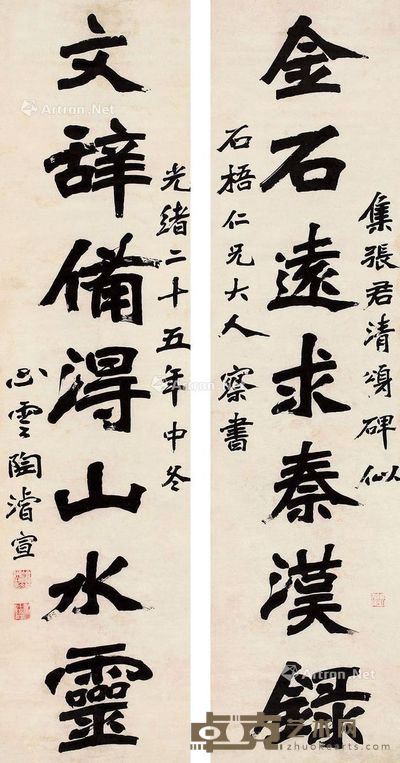 集張君清頌碑似
金石遠求秦漢録
石梧仁兄大人察書
光緒二十五年中冬
文辭備得山水靈
心雲陶濬宣
Artron.Net
卓克艺术网
www.zhuokearts.com